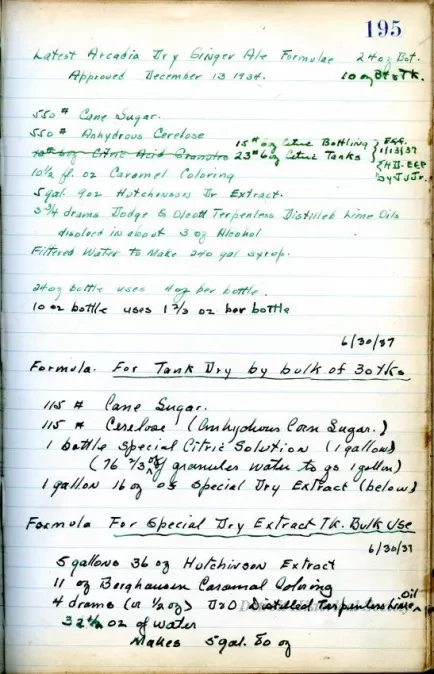 195
Latest Arcadia Dry Ginger Ale Formulae 24oz Bot.
Approved December 13 1934. 10 oz Bt & Tk.
550 # Cane Sugar.
550 # Anhydrous Cerelose
15 # 6 oz Citric Bottling
Citric Acid Granules 23 # 6 oz Citric Tanks
1/13/37
by JJJr.
10 1/2 fl. oz Caramel Coloring
5 gal. 9 oz Hutchinson Dr. Extract.
5 3/4 drams Dodge & Olcott Terpenless Distilled Lime Oils
disolved in about 3 oz Alcohol
Filtered Water to Make 240 gal syrup.
24oz bottle uses 4oz per bottle.
10 oz bottle uses 1 2/3 oz per bottle
6/30/37
Formula. For Tank Dry by bulk of 30 tks
115 # Cane Sugar.
115 # Cerelose (Anhydrous Corn Sugar.)
1 bottle Special Citric Solution (1 gallon)
(76 2/3 oz of granules water to go 1 gallon)
1 gallon 16 oz of Special Dry Extract (below)
Formula For Special Dry Extract Tk. Bulk Use
6/30/37
5 gallons 36 oz Hutchinson Extract
11 oz Berghausen Caramal Coloring
4 drams (or 1/2 oz) D&O Distilled Terpenless Lime Oil
32 1/2 oz of water
Makes 5 gal. 80 oz